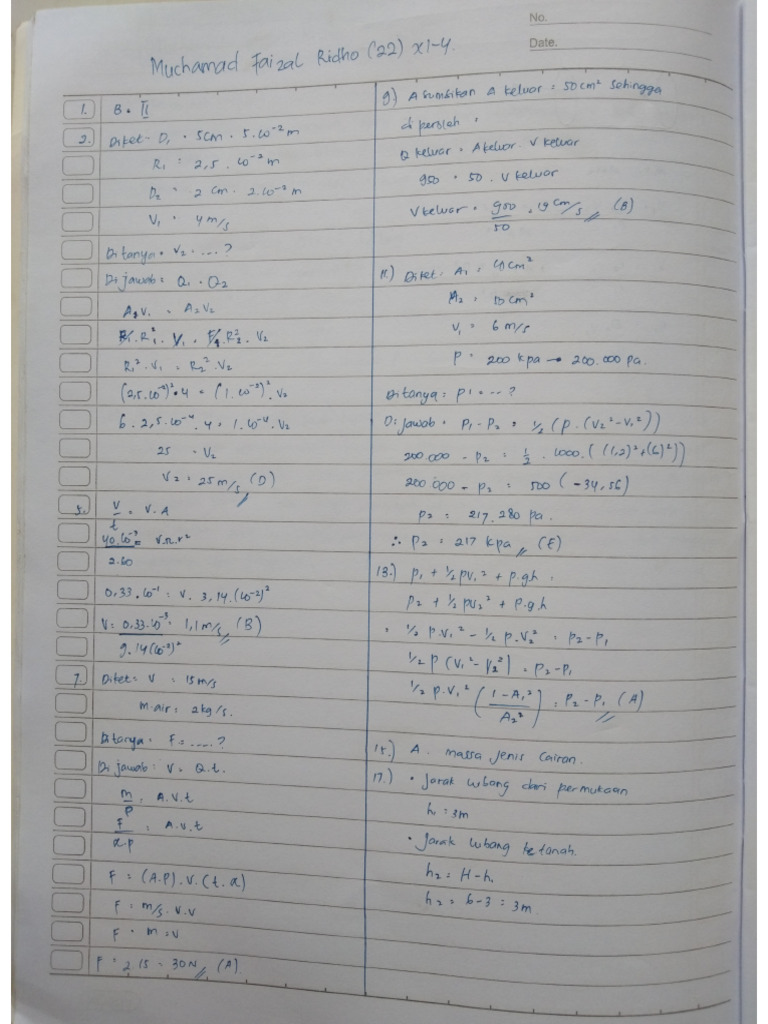 No.
Date.
Muchamad Faizal Ridho (22) XI-4.
1. B. II
2. Diket = D₁ = 5cm = 5.10⁻² m
R₁ = 2,5 . 10⁻² m
D₂ = 2 cm = 2.10⁻² m
V₁ = 4 m/s
Ditanya = V₂ = ....?
Dijawab = Q₁ = Q₂
A₁V₁ = A₂V₂
R₁² . V₁ = R₂² . V₂
R₁² . V₁ = R₂² . V₂
(2,5.10⁻²)² . 4 = (1.10⁻²)² . V₂
6.2,5.10⁻⁴ . 4 = 1.10⁻⁴ . V₂
25 = V₂
V₂ = 25 m/s (D)
5. V/t = V.A
40.10⁻³/2.60 = V.π.r²
0,33.10⁻¹ = V. 3,14.(10⁻²)²
V = 0,33.10⁻³/9.14(10⁻²)² = 1,1 m/s (B)
7. Diket = V = 15 m/s
m.air = 2kg/s.
Ditanya = F = ....?
Dijawab = V = Q.t.
m/ρ = A.V.t
F/a.ρ = A.v.t
F = (A.ρ).V.(t.a)
F = m/s . V.V
F = m = V
F = 2.15 = 30N (A)
9) Asumsikan A keluar = 50cm² sehingga
diperoleh =
Q keluar = A keluar . V keluar
950 = 50 . V keluar
V keluar = 950/50 = 19 cm/s (B)
11.) Diket. A₁ = 4cm²
A₂ = 10 cm²
V₁ = 6 m/s
P = 200 kpa → 200.000 pa.
Ditanya = P₁ = ...?
Dijawab = P₁ - P₂ = 1/2 (ρ. (V₂² - V₁²))
200.000 - P₂ = 1/2 . 1000. ((1,2)² + (6)²))
200.000 - P₂ = 500 (-34,56)
P₂ = 217.280 pa.
∴ P₂ = 217 kpa (E)
13.) P₁ + 1/2 ρV₁² + ρ.gh =
P₂ + 1/2 ρV₂² + ρ.g.h
= 1/2 ρ.V₁² - 1/2 ρ.V₂² = P₂ - P₁
1/2 ρ (V₁² - V₂²) = P₂ - P₁
1/2 ρ.V₁² (1 - A₁²/A₂²) = P₂ - P₁ (A)
15.) A. massa jenis cairan.
17.) • Jarak lubang dari permukaan
h = 3m
• Jarak lubang ke tanah.
h₂ = H - h₁
h₂ = 6 - 3 = 3m